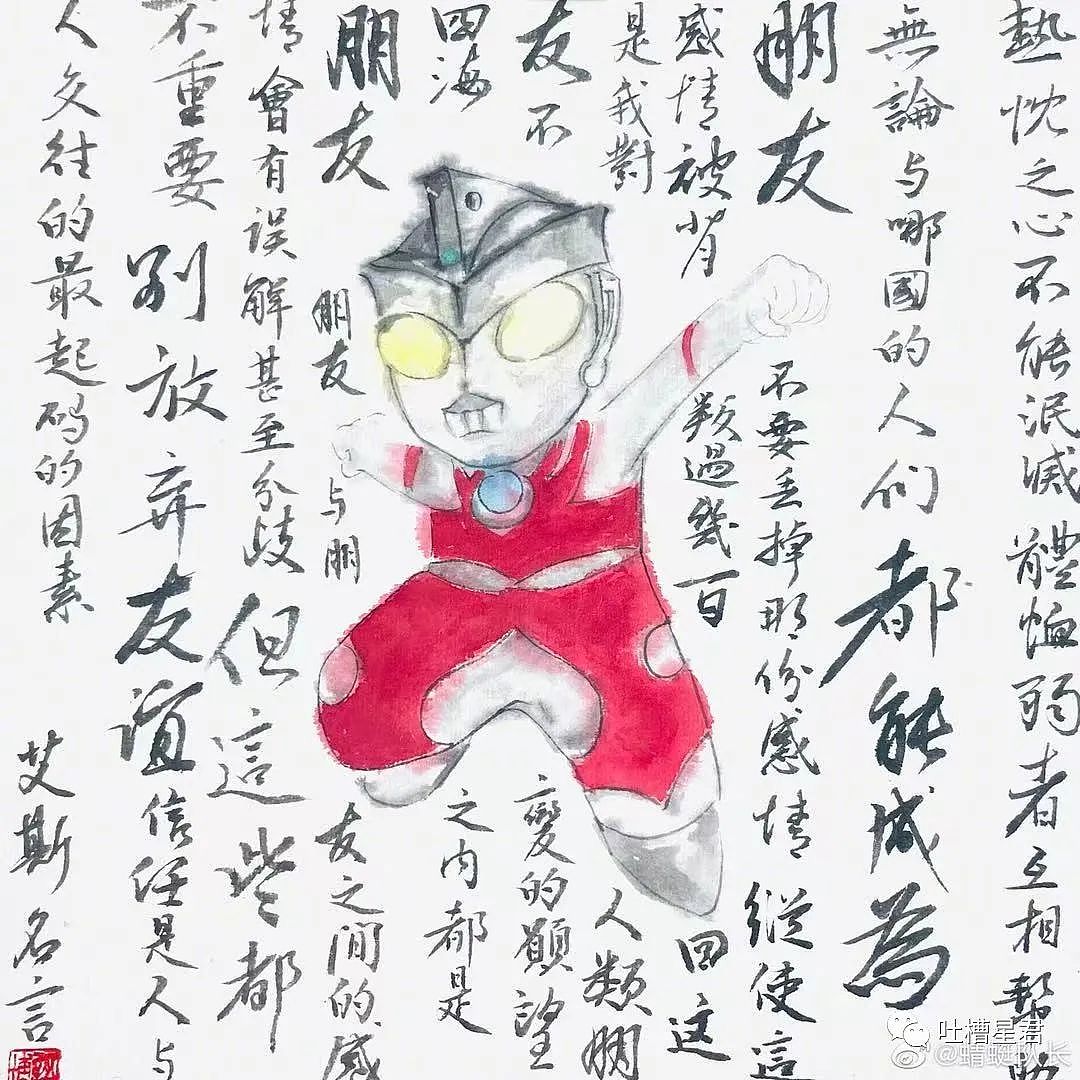 熱忱之心不能泯滅體恤弱者互相幫助
無論与哪國的人们都能成為
朋友不要丢掉那份感情縱使這
感情被背類過幾百回这
是我對人類朋
友不變的願望
四海之内都是
朋友朋友与朋友之间的感
情會有误解甚至分歧但這些都
不重要别放弃友誼信任是人与
人交往的最起码的因素
艾斯名言
吐槽星君
@蜻蜓队长